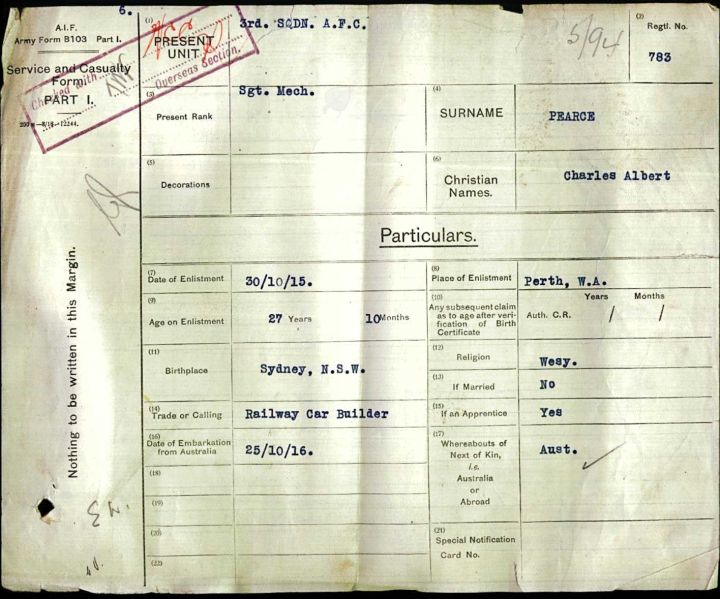 6.
A.I.F.
Army Form B103 Part I.
Service and Casualty
Form.
PART I.
Checked with
Overseas Section.
(1)
PRESENT
UNIT
3rd. SQDN. A.F.C.
5/94
(2)
Regtl. No.
783
(3)
Present Rank
Sgt. Mech.
(4)
SURNAME
PEARCE
(5)
Decorations
(6)
Christian
Names.
Charles Albert
Nothing to be written in this Margin.
Particulars.
(7)
Date of Enlistment
30/10/15.
(8)
Place of Enlistment
Perth, W.A.
(9)
Age on Enlistment
27 Years 10 Months
(10)
Any subsequent claim
as to age after veri-
fication of Birth
Certificate
Auth. C.R.
Years Months
/ /
(11)
Birthplace
Sydney, N.S.W.
(12)
Religion
Wesy.
(13)
If Married
No
(14)
Trade or Calling
Railway Car Builder
(15)
If an Apprentice
Yes
(16)
Date of Embarkation
from Australia
25/10/16.
(17)
Whereabouts of
Next of Kin,
i.e.
Australia
or
Abroad
Aust.
(18)
(19)
(20)
(21)
Special Notification
Card No.
(22)